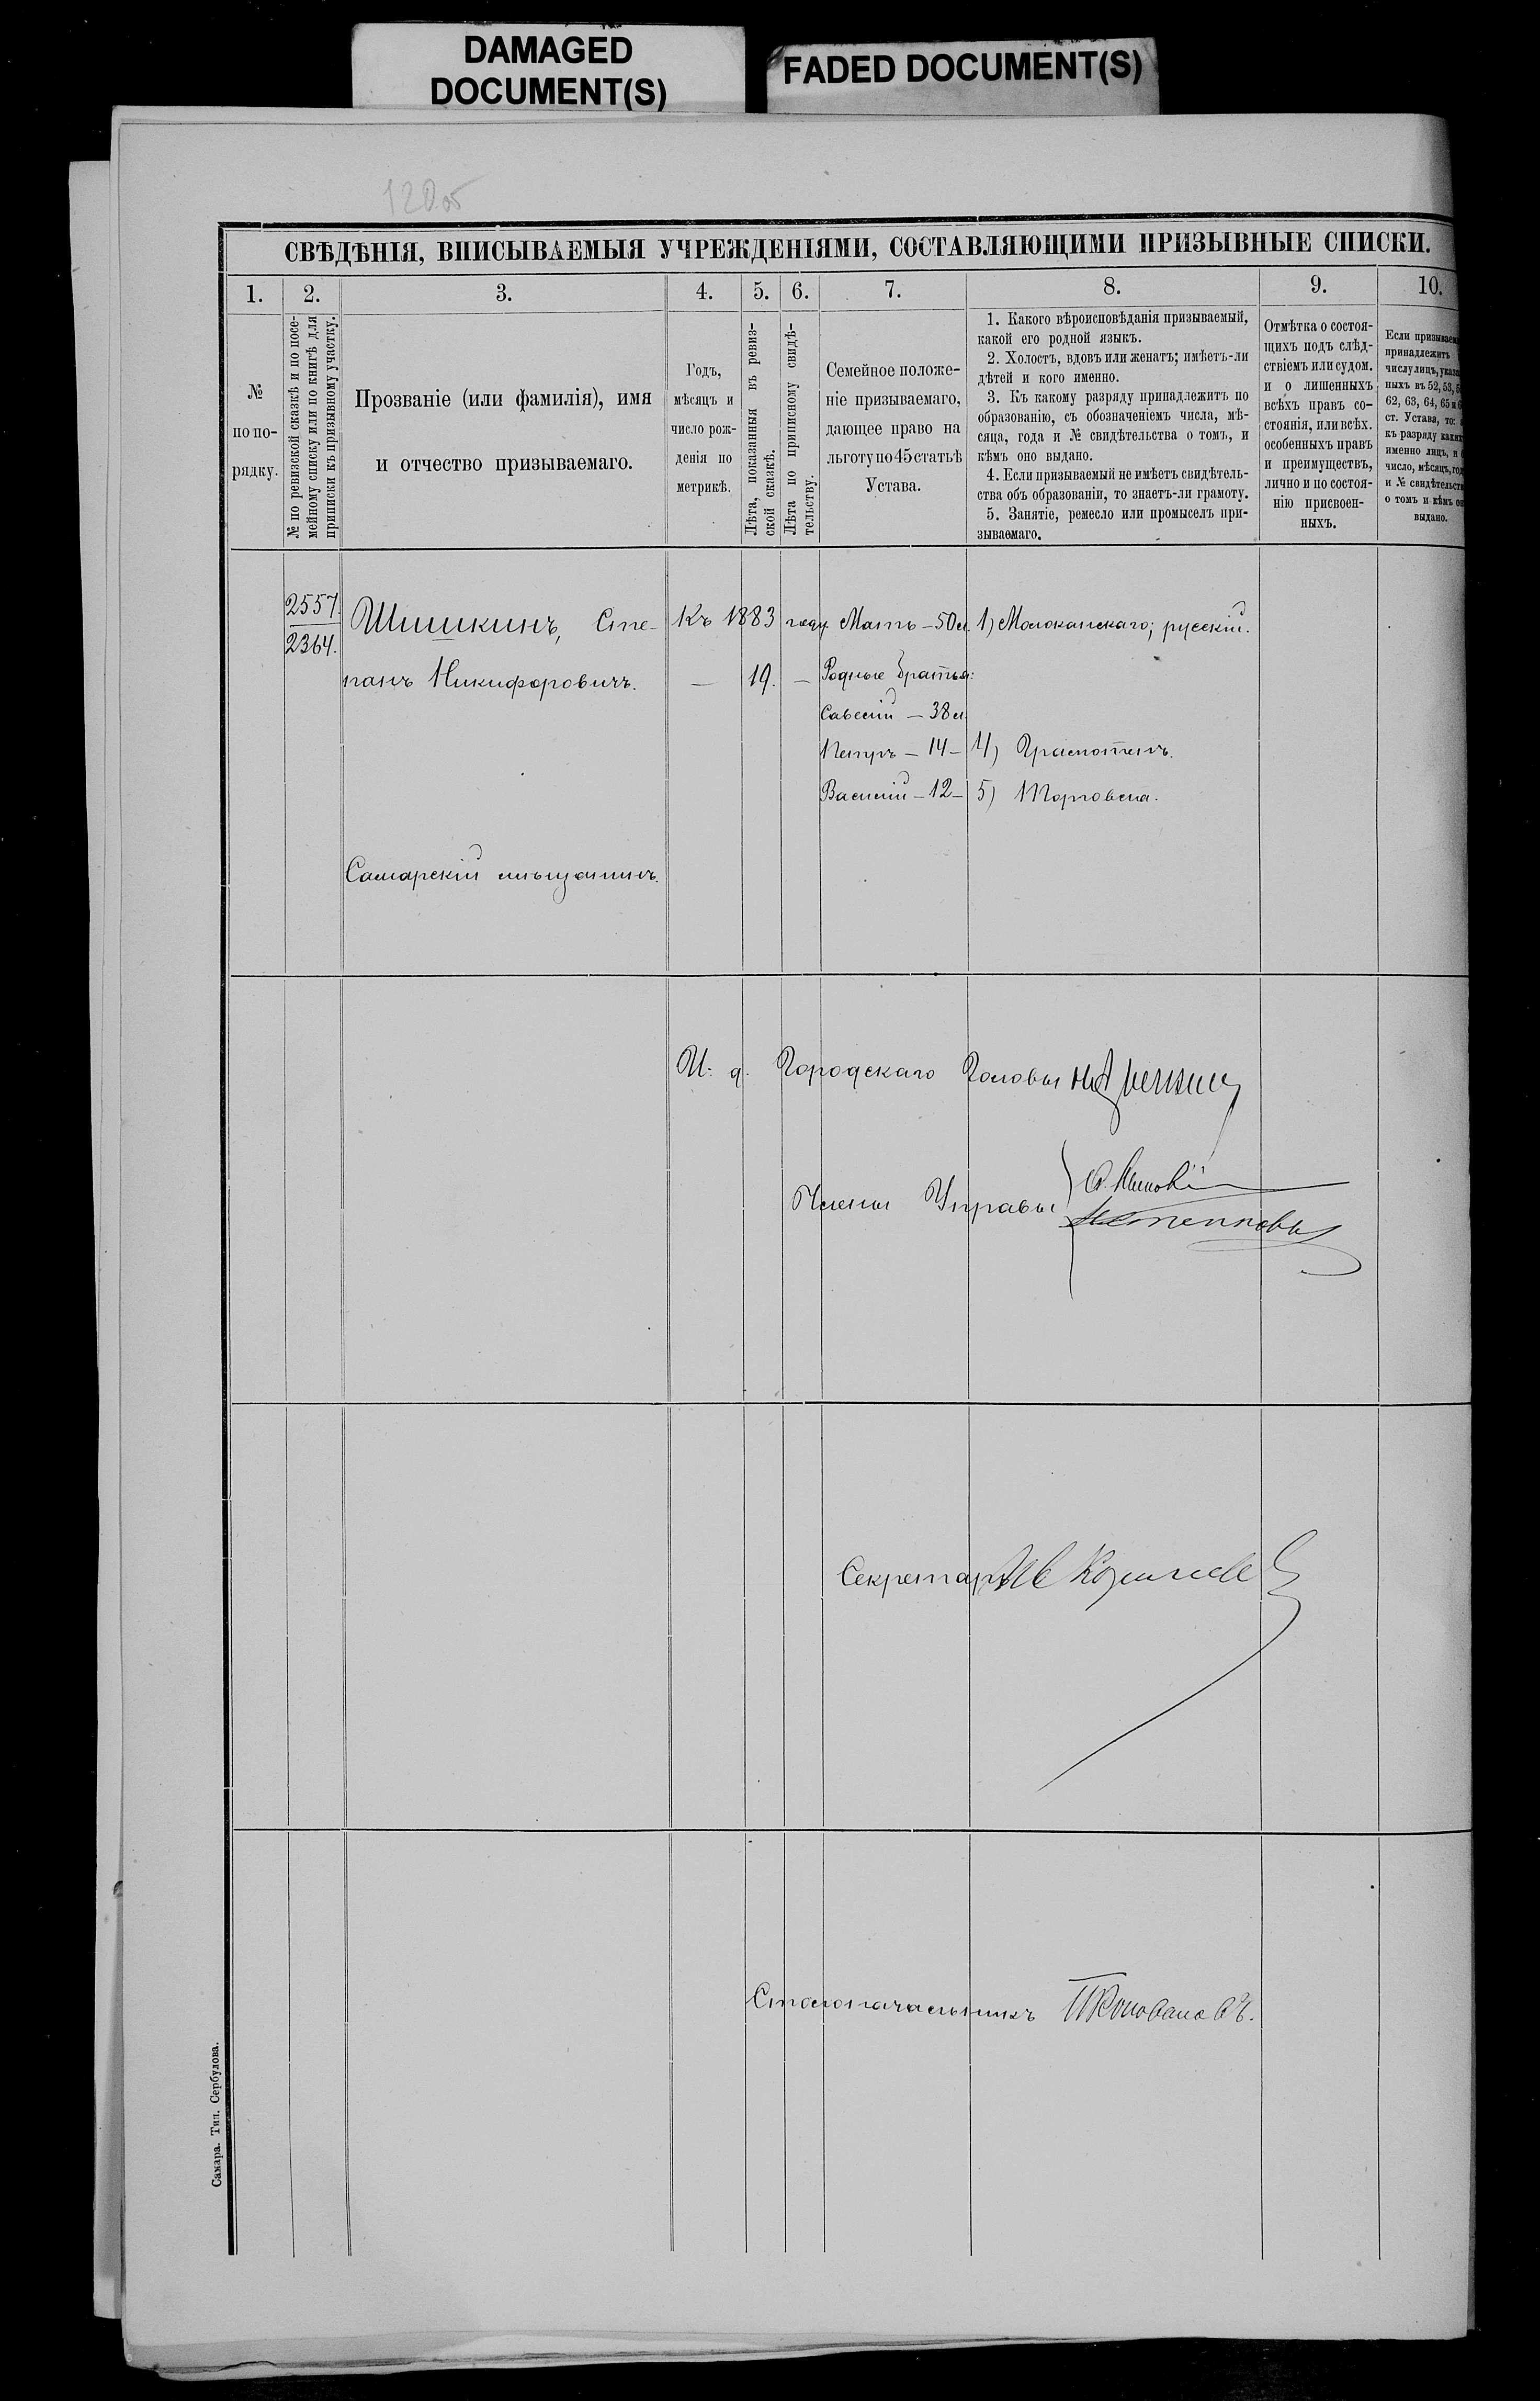 DAMAGED
DOCUMENT(S)
FADED DOCUMENT(S)
120об
СВѢДѢНІЯ, ВПИСЫВАЕМЫЯ УЧРЕЖДЕНІЯМИ, СОСТАВЛЯЮЩИМИ ПРИЗЫВНЫЕ СПИСКИ.
1. 2. 3. 4. 5. 6. 7. 8. 9. 10.
№
по по-
рядку.
№ по ревизской сказкѣ и по посе-
мейному списку или по книгѣ для
приписки къ призывному участку.
Прозваніе (или фамилія), имя
и отчество призываемаго.
Годъ,
мѣсяцъ и
число рож-
денія по
метрикѣ.
Лѣта, показанныя въ ревиз-
ской сказкѣ.
Лѣта по приписному свидѣ-
тельству.
Семейное положе-
ніе призываемаго,
дающее право на
льготу по 45 статьѣ
Устава.
1. Какого вѣроисповѣданія призываемый,
какой его родной языкъ.
2. Холостъ, вдовъ или женатъ; имѣетъ-ли
дѣтей и кого именно.
3. Къ какому разряду принадлежитъ по
образованію, съ обозначеніемъ числа, мѣ-
сяца, года и № свидѣтельства о томъ, и
кѣмъ оно выдано.
4. Если призываемый не имѣетъ свидѣтель-
ства объ образованіи, то знаетъ-ли грамоту.
5. Занятіе, ремесло или промыселъ при-
зываемаго.
Отмѣтка о состоя-
щихъ подъ слѣд-
ствіемъ или судом.
и о лишенныхъ
всѣхъ правъ со-
стоянія, или всѣх.
особенныхъ правъ
и преимуществъ,
лично и по состоя-
нію присвоен-
ныхъ.
Если призываем
принадлежитъ
числу лицъ, указа
ныхъ въ 52, 53,
62, 63, 64, 65 и
ст. Устава, то:
къ разряду каких
именно лицъ, и
число, мѣсяцъ, год
и № свидѣтельств
о томъ и кѣмъ он
выдано.
2557.
2364.
Шишкинъ, Сте-
панъ Никифоровичъ.
Къ 1883 году
— 19. —
Мать — 50 л.
Родные братья:
Савелій — 38 л.
Петръ — 14 —
Василій — 12 —
1) Молоканскаго; русскій.
4) Грамотенъ.
5) Торговля.
Самарскій мѣщанинъ.
И. д. Городскаго Головы
Члены Управы
Секретарь
Столоначальникъ П Коноваловъ.
Самара. Тип. Сербулова.